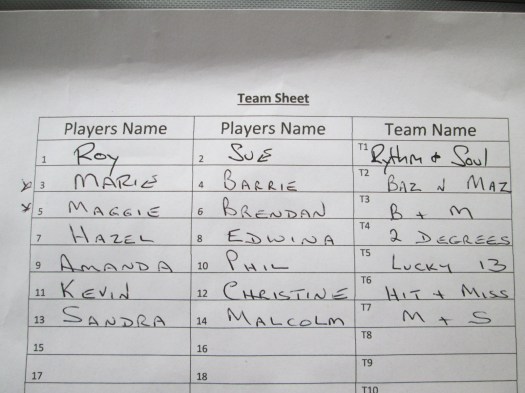 Team Sheet
Players Name Players Name Team Name
1 Roy 2 SUE T1 Rythm + Soul
3 MARIE 4 BARRIE T2 BAZ N MAZ
5 MAGGIE 6 BRENDAN T3 B + M
7 HAZEL 8 EDWINA T4 2 DEGREES
9 AMANDA 10 PHIL T5 LUCKY 13
11 KEVIN 12 CHRISTINE T6 HIT + MISS
13 SANDRA 14 MALCOLM T7 M + S
15 16 T8
17 18 T9
T10